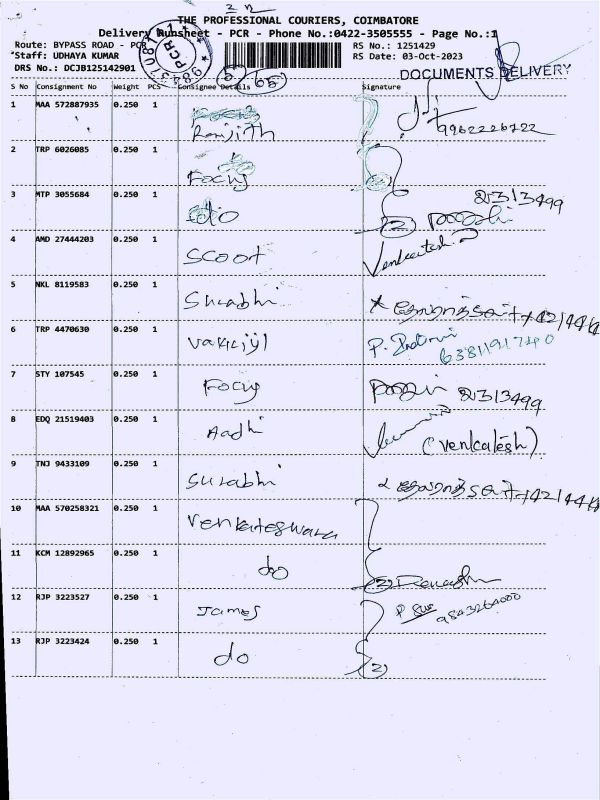 THE PROFESSIONAL COURIERS, COIMBATORE
Delivery Runsheet - PCR - Phone No.:0422-3505555 - Page No.:1
Route: BYPASS ROAD - PCR RS No.: 1251429
*Staff: UDHAYA KUMAR RS Date: 03-Oct-2023
DRS No.: DCJB125142901 65 DOCUMENTS DELIVERY
S No Consignment No Weight PCS Consignee Details Signature
1 MAA 572887935 0.250 1 Ranjith 9962226222
2 TRP 6026085 0.250 1 Focus
3 MTP 3055684 0.250 1 do 2313499
4 AMD 27444203 0.250 1 Scoot Venkatesh
5 NKL 8119583 0.250 1 Surabhi
6 TRP 4470630 0.250 1 6381191740
7 STY 107545 0.250 1 Focus 2313499
8 EDQ 21519403 0.250 1 Aadhi (Venkatesh)
9 TNJ 9433109 0.250 1 Surabhi
10 MAA 570258321 0.250 1 Venkateswara
11 KCM 12892965 0.250 1 do (2)
12 RJP 3223527 0.250 1 James 9843264000
13 RJP 3223424 0.250 1 do (2)